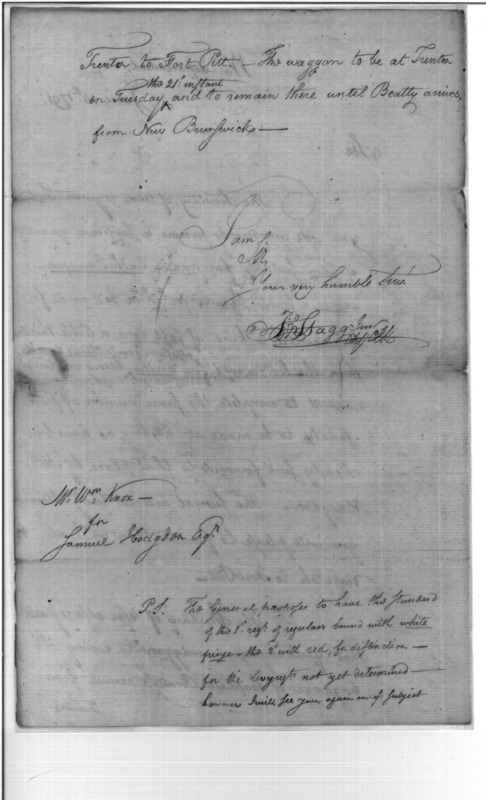 Trenton to Fort Pitt. — The waggon to be at Trenton
the 21st instant
on Tuesday and to remain there until Beatty arrives,
from New Brunswick —
I am
Sir
Your very humble Serv.t
Jn.o Stagg Jun.r
Mr. Wm. Knox —
for
Samuel Hodgdon Esq.r
P.S. The General purposes to have the Standard
of the 1st regt. of regulars bound with white
fringe — the 2d with red, for distinction —
for the Levy regts. not yet determined —
however I will see you again on ye subject